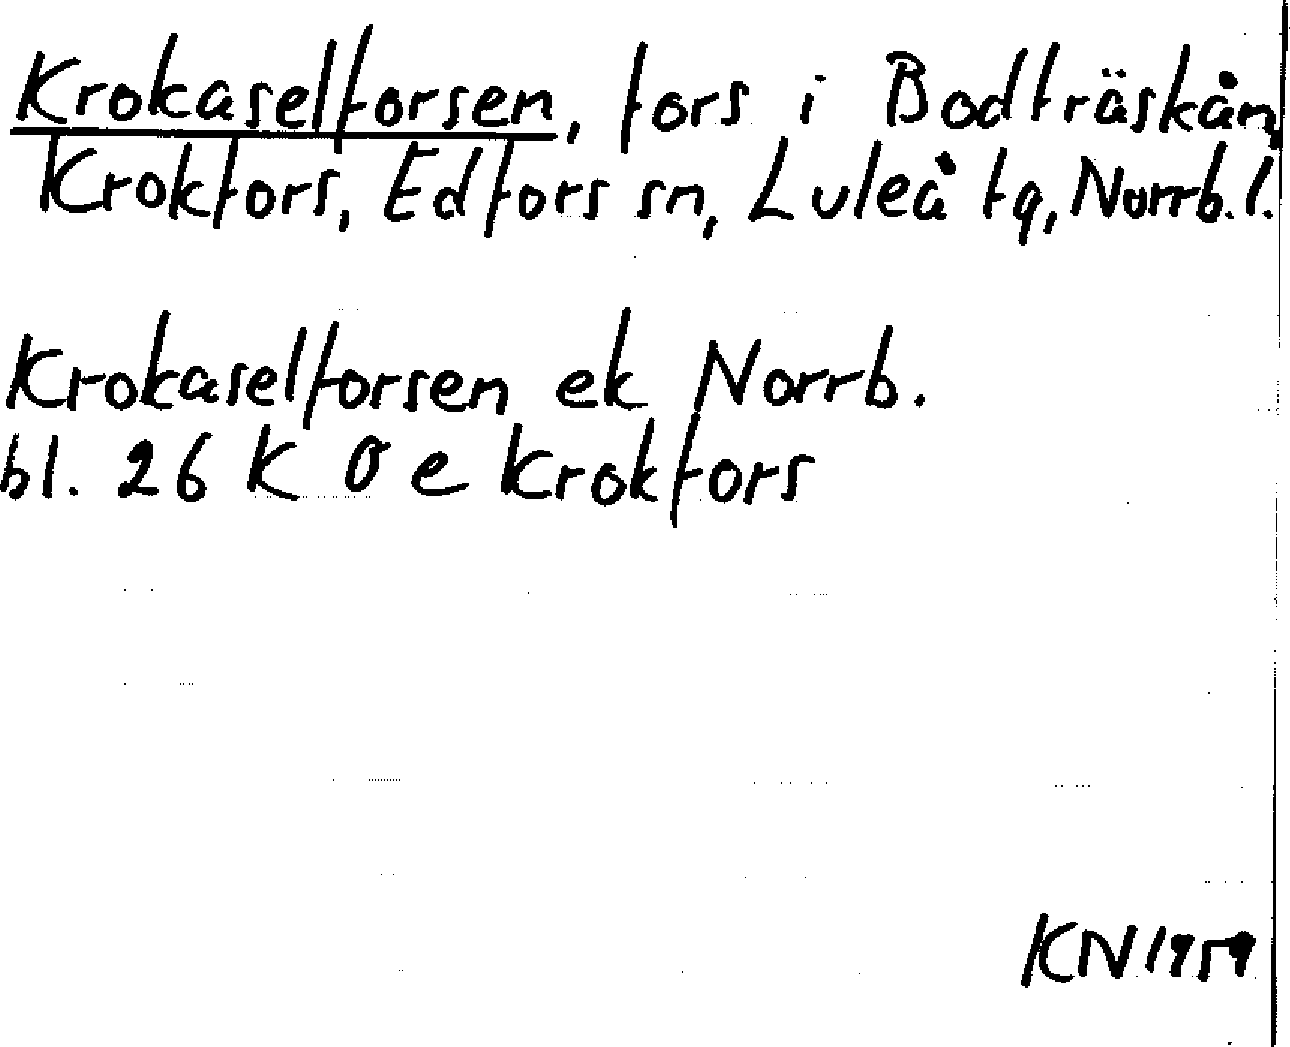 Krokaselforsen, fors i Bodträskån,
Krokfors, Edfors sn, Luleå tg, Norrb. l.
Krokaselforsen ek Norrb.
bl. 26 K Ö e Krokfors
KN 1959